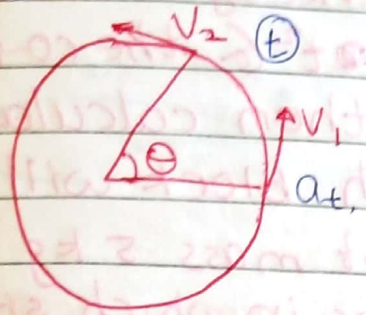 V₂
t
θ
V₁
aₜ,